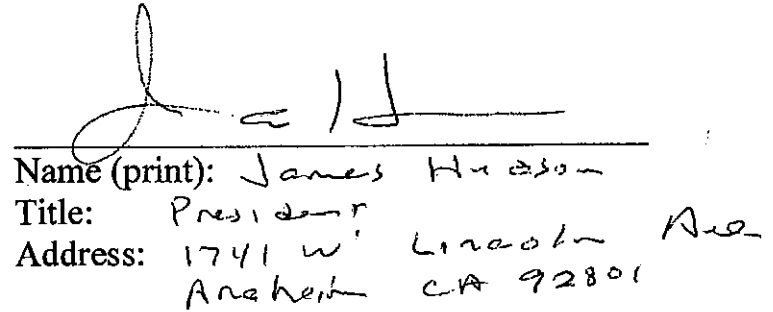 Name (print): James Hudson
Title: President
Address: 1741 W. Lincoln Ave
Anaheim CA 92801